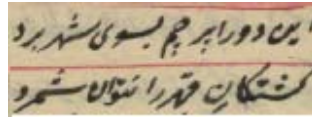 این دو را بر چم بسوی شهر برد
کشتگان را نتوان شمرد